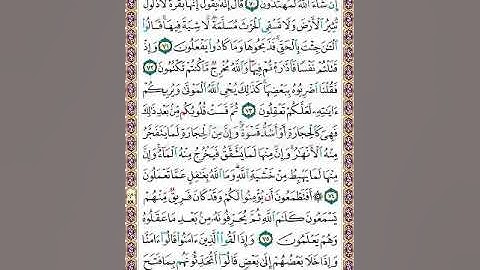 إِن شَآءَ ٱللَّهُ لَمُهْتَدُونَ ٧٠ قَالَ إِنَّهُۥ يَقُولُ إِنَّهَا بَقَرَةٌ لَّا ذَلُولٌ
تُثِيرُ ٱلْأَرْضَ وَلَا تَسْقِى ٱلْحَرْثَ مُسَلَّمَةٌ لَّا شِيَةَ فِيهَا قَالُوا۟
ٱلْـَٔـٰنَ جِئْتَ بِٱلْحَقِّ فَذَبَحُوهَا وَمَا كَادُوا۟ يَفْعَلُونَ ٧١ وَإِذْ
قَتَلْتُمْ نَفْسًا فَٱدَّٰرَْٰٔتُمْ فِيهَا وَٱللَّهُ مُخْرِجٌ مَّا كُنتُمْ تَكْتُمُونَ ٧٢
فَقُلْنَا ٱضْرِبُوهُ بِبَعْضِهَا كَذَٰلِكَ يُحْىِ ٱللَّهُ ٱلْمَوْتَىٰ وَيُرِيكُمْ
ءَايَـٰتِهِۦ لَعَلَّكُمْ تَعْقِلُونَ ٧٣ ثُمَّ قَسَتْ قُلُوبُكُم مِّنۢ بَعْدِ ذَٰلِكَ
فَهِىَ كَٱلْحِجَارَةِ أَوْ أَشَدُّ قَسْوَةً وَإِنَّ مِنَ ٱلْحِجَارَةِ لَمَا يَتَفَجَّرُ
مِنْهُ ٱلْأَنْهَـٰرُ وَإِنَّ مِنْهَا لَمَا يَشَّقَّقُ فَيَخْرُجُ مِنْهُ ٱلْمَآءُ وَإِنَّ
مِنْهَا لَمَا يَهْبِطُ مِنْ خَشْيَةِ ٱللَّهِ وَمَا ٱللَّهُ بِغَـٰفِلٍ عَمَّا تَعْمَلُونَ
٧٤ ۞ أَفَتَطْمَعُونَ أَن يُؤْمِنُوا۟ لَكُمْ وَقَدْ كَانَ فَرِيقٌ مِّنْهُمْ
يَسْمَعُونَ كَلَـٰمَ ٱللَّهِ ثُمَّ يُحَرِّفُونَهُۥ مِنۢ بَعْدِ مَا عَقَلُوهُ
وَهُمْ يَعْلَمُونَ ٧٥ وَإِذَا لَقُوا۟ ٱلَّذِينَ ءَامَنُوا۟ قَالُوٓا۟ ءَامَنَّا
وَإِذَا خَلَا بَعْضُهُمْ إِلَىٰ بَعْضٍ قَالُوٓا۟ أَتُحَدِّثُونَهُم بِمَا فَتَحَ